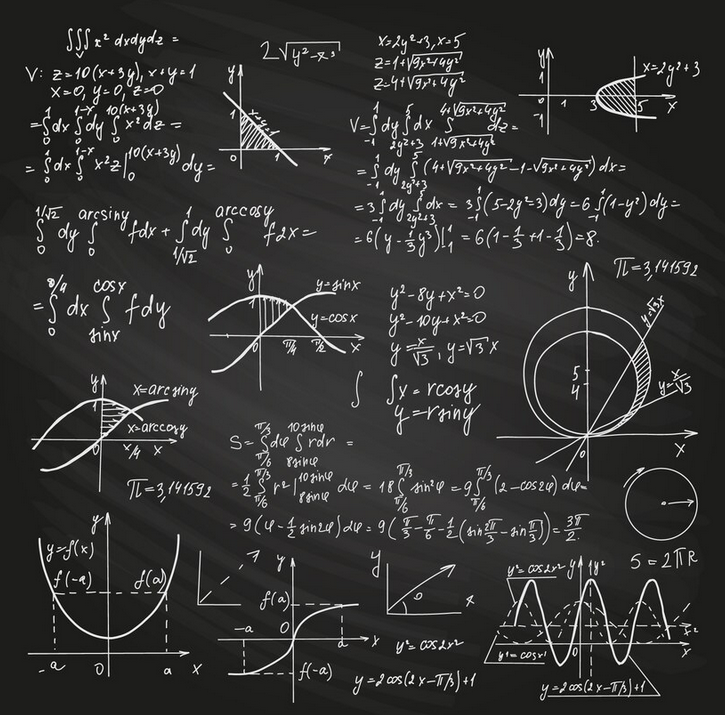 ∫∫∫ x² dxdydz =
V
V: z=10(x+3y), x+y=1
x=0, y=0, z=0
=∫₀¹dx ∫₀^(1-x)dy ∫₀^(10(x+3y)) x²dz =
=∫₀¹dx ∫₀^(1-x) x²z|₀^(10(x+3y)) dy=
2√(y²-x³)
y
1
x+y=1
0
1
x
x=2y²+3, x=5
z=1+√(9x²+4y²)
z=4+√(9x²+4y²)
V=∫₋₁¹dy ∫_(2y²+3)^5 dx ∫_(1+√(9x²+4y²))^(4+√(9x²+4y²)) dz=
=∫₋₁¹dy ∫_(2y²+3)^5 (4+√(9x²+4y²)-1-√(9x²+4y²))dx=
=3∫₋₁¹dy ∫_(2y²+3)^5 dx= 3∫₋₁¹(5-2y²-3)dy=6∫₋₁¹(1-y²)dy=
=6(y-1/3y³)|₁¹=6(1-1/3+1-1/3)=8.
y
x=2y²+3
1
1
3
5
x
-1
∫₀^(1/√2) dy ∫₀^(arcsiny) fdx+∫_(1/√2)^1 dy ∫₀^(arccosy) f2x=
=∫₀ dx ∫_(sinx)^(cosx) fdy
y
y=sinx
1
y=cosx
0
π/4
π/2
x
y²-8y+x²=0
y²-10y+x²=0
y=x/√3, y=√3x
∫
∫x=rcosy
y=rsiny
π=3,141592
y
y=√3x
5
4
y=x/√3
x
y
x=arcsiny
1
x=arccosy
0
x
π=3,141592
S=∫_(π/6)^(π/3)dφ ∫_(8sinφ)^(10sinφ) rdr =
=1/2∫_(π/6)^(π/3) r²|_(8sinφ)^(10sinφ) dφ=18∫_(π/6)^(π/3) sin²φ=9∫_(π/6)^(π/3)(2-cos2φ)dφ=
=9(φ-1/2sin2φ)dφ=9(π/3-π/6-1/2(sin2π/3-sinπ/3))=3π/2.
S=2πR
y
y=f(x)
f(-a)
f(a)
-a
0
a
x
y
f(a)
-a
0
a
x
f(-a)
y
x
y²=cos2x²
y=2cos(2x-π/3)+1
y²=cos2x²
y
1y²
y¹=cosx¹
0
x²
x
y=2cos(2x-π/3)+1